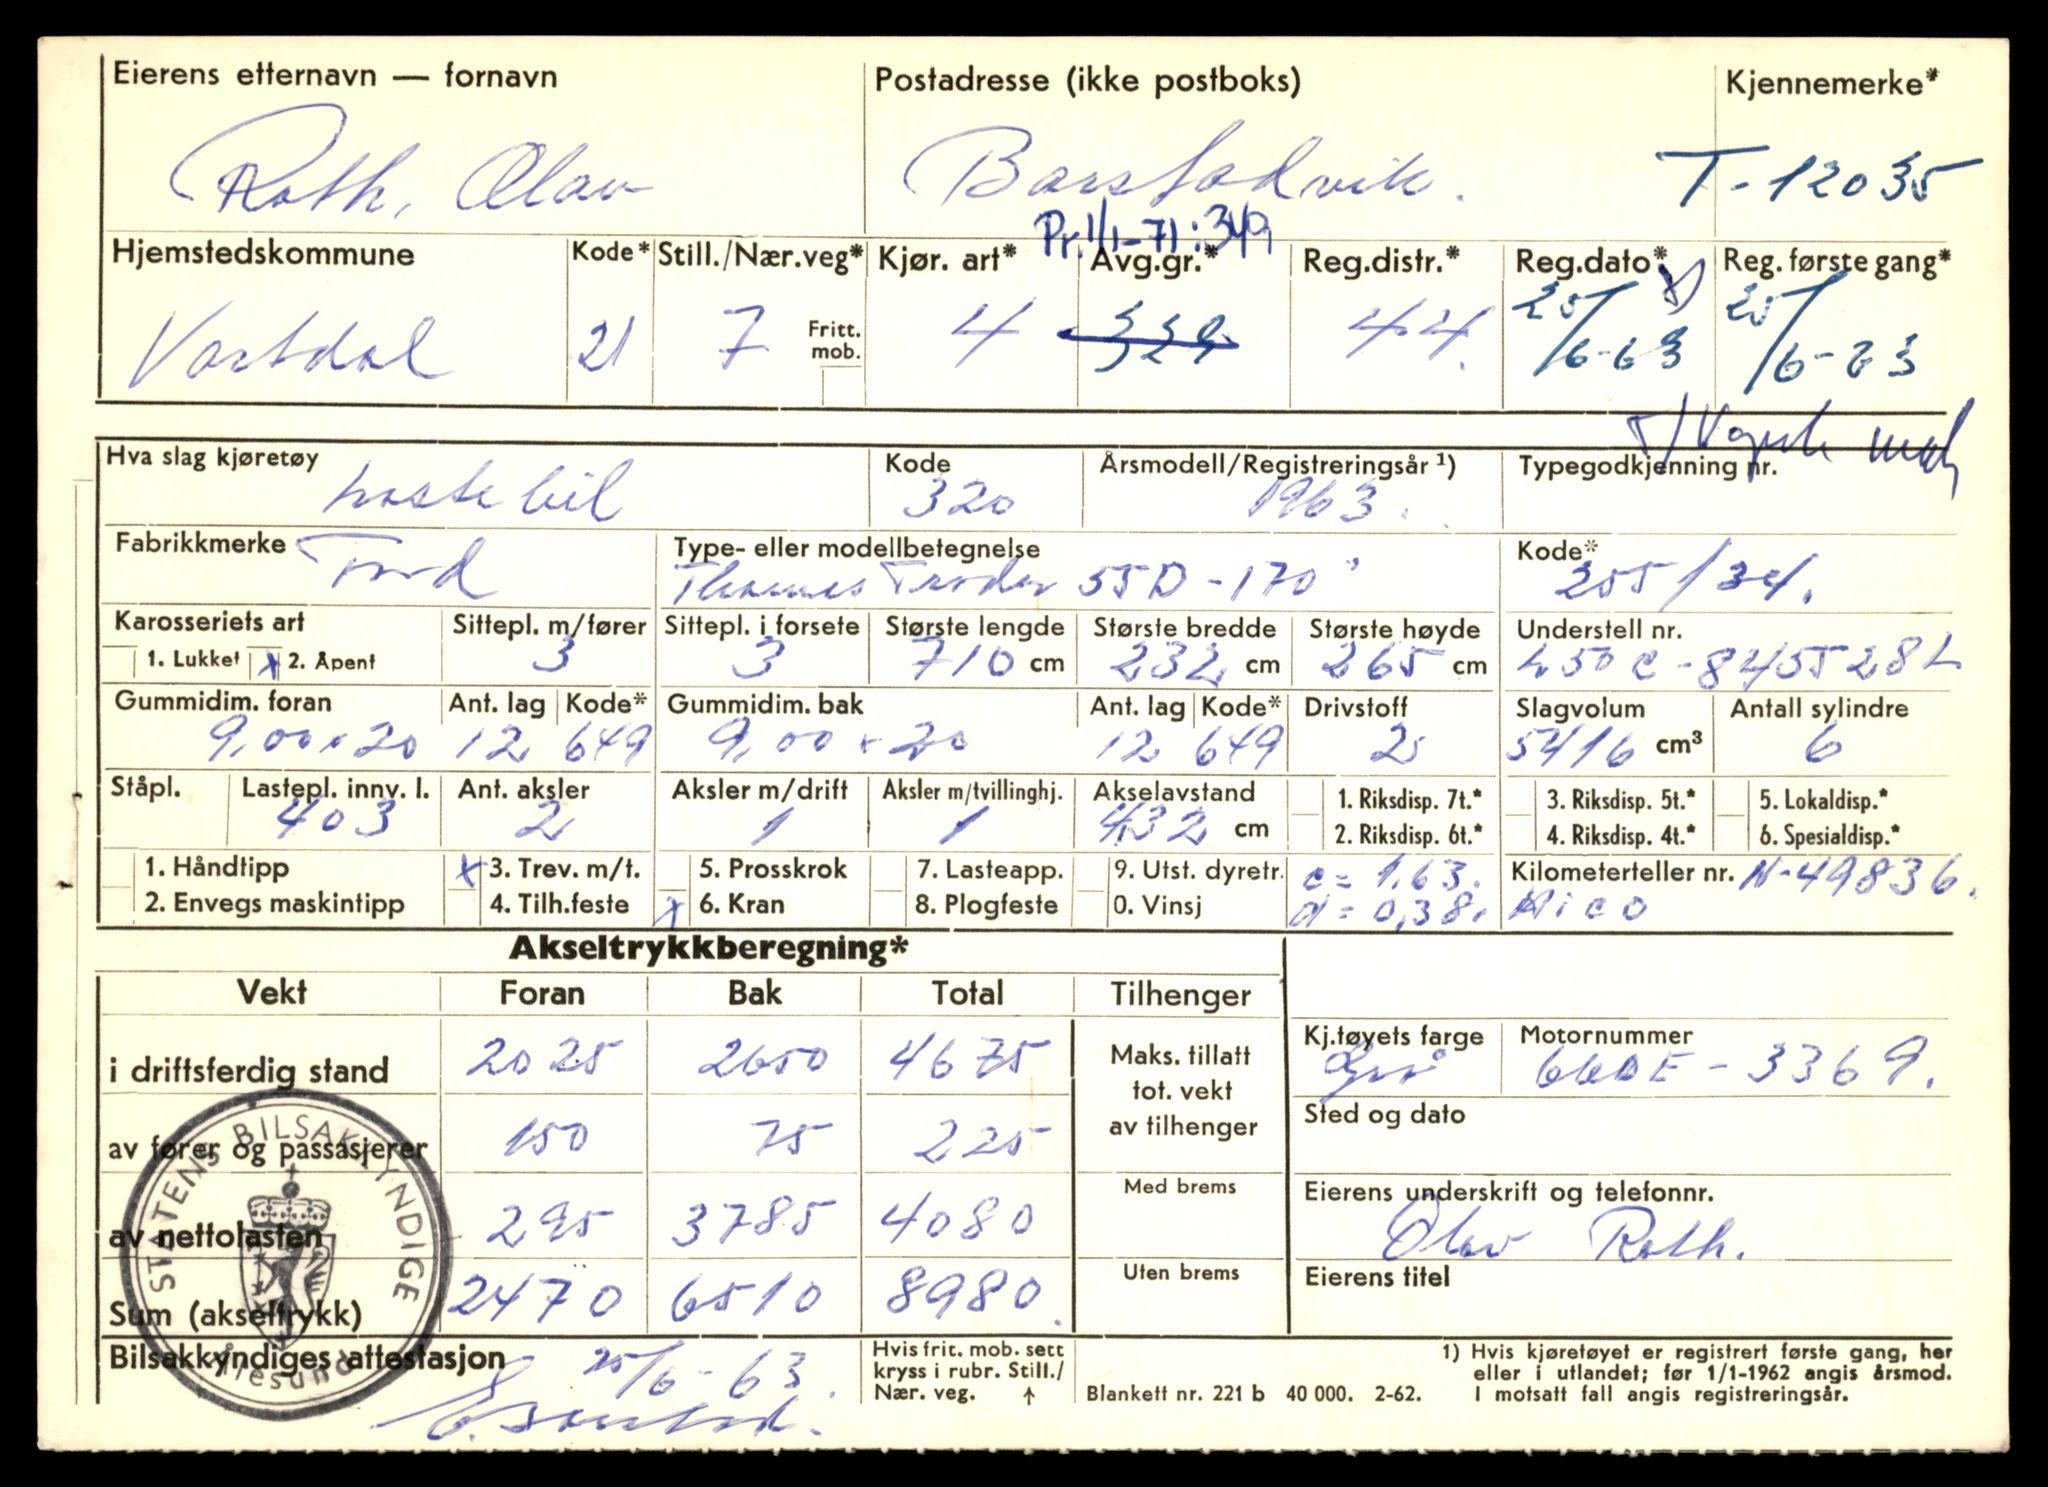 Eierens etternavn — fornavn Postadresse (ikke postboks) Kjennemerke*
Roth, Olav Barstadvik. T-12035
Pr. 1/1-71: 349
Hjemstedskommune Kode* Still./Nær.veg* Kjør. art* Avg.gr.* Reg.distr.* Reg.dato* Reg. første gang*
Vartdal 21 7 Fritt. mob. 4 329 44. 25/6-63 25/6-63
Hva slag kjøretøy Kode Årsmodell/Registreringsår ¹) Typegodkjenning nr.
Lastebil 320 1963.
Fabrikkmerke Type- eller modellbetegnelse Kode*
Ford Thames Trader 55D-170" 255/34.
Karosseriets art Sittepl. m/fører Sittepl. i forsete Største lengde Største bredde Største høyde Understell nr.
1. Lukket x 2. Åpent 3 3 710 cm 232 cm 265 cm L50C-845528L
Gummidim. foran Ant. lag Kode* Gummidim. bak Ant. lag Kode* Drivstoff Slagvolum Antall sylindre
9,00x20 12 649 9,00x20 12 649 2 5416 cm³ 6
Ståpl. Lastepl. innv. l. Ant. aksler Aksler m/drift Aksler m/tvillinghj. Akselavstand 1. Riksdisp. 7t.* 3. Riksdisp. 5t.* 5. Lokaldisp.*
403 2 1 1 432 cm 2. Riksdisp. 6t.* 4. Riksdisp. 4t.* 6. Spesialdisp.*
1. Håndtipp x 3. Trev. m/t. 5. Prosskrok 7. Lasteapp. 9. Utst. dyretr. c = 1,63. Kilometerteller nr. N-49836.
2. Envegs maskintipp 4. Tilh.feste x 6. Kran 8. Plogfeste 0. Vinsj d = 0,38.
Akseltrykkberegning*
Vekt Foran Bak Total Tilhenger
i driftsferdig stand 2025 2650 4675 Maks. tillatt tot. vekt av tilhenger
Kj.tøyets farge Motornummer
Grå 660E-3369.
av fører og passasjerer 150 75 225
Sted og dato
Med brems
Eierens underskrift og telefonnr.
av nettolasten 295 3785 4080
Olav Roth.
Uten brems
Eierens titel
Sum (akseltrykk) 2470 6510 8980.
STATENS BILSAKKYNDIGE
Ålesund
Bilsakkyndiges attestasjon 25/6-63.
Hvis frit. mob. sett
kryss i rubr. Still./
Nær. veg. ↑
Blankett nr. 221 b 40 000. 2-62.
1) Hvis kjøretøyet er registrert første gang, her
eller i utlandet; før 1/1-1962 angis årsmod.
I motsatt fall angis registreringsår.